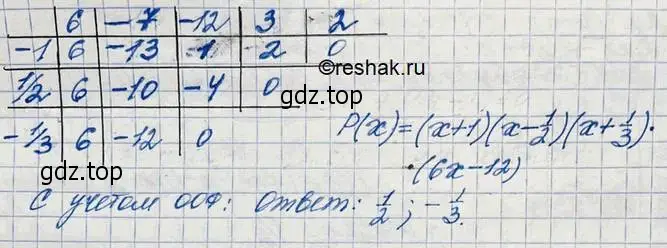 6 −7 −12 3 2
−1 6 −13 1 2 0
©reshak.ru
1/2 6 −10 −4 0
гдз.top
−1/3 6 −12 0
P(x)=(x+1)(x−1/2)(x+1/3)·
·(6x−12)
гдз.top
С учетом ООФ: Ответ: 1/2; −1/3.